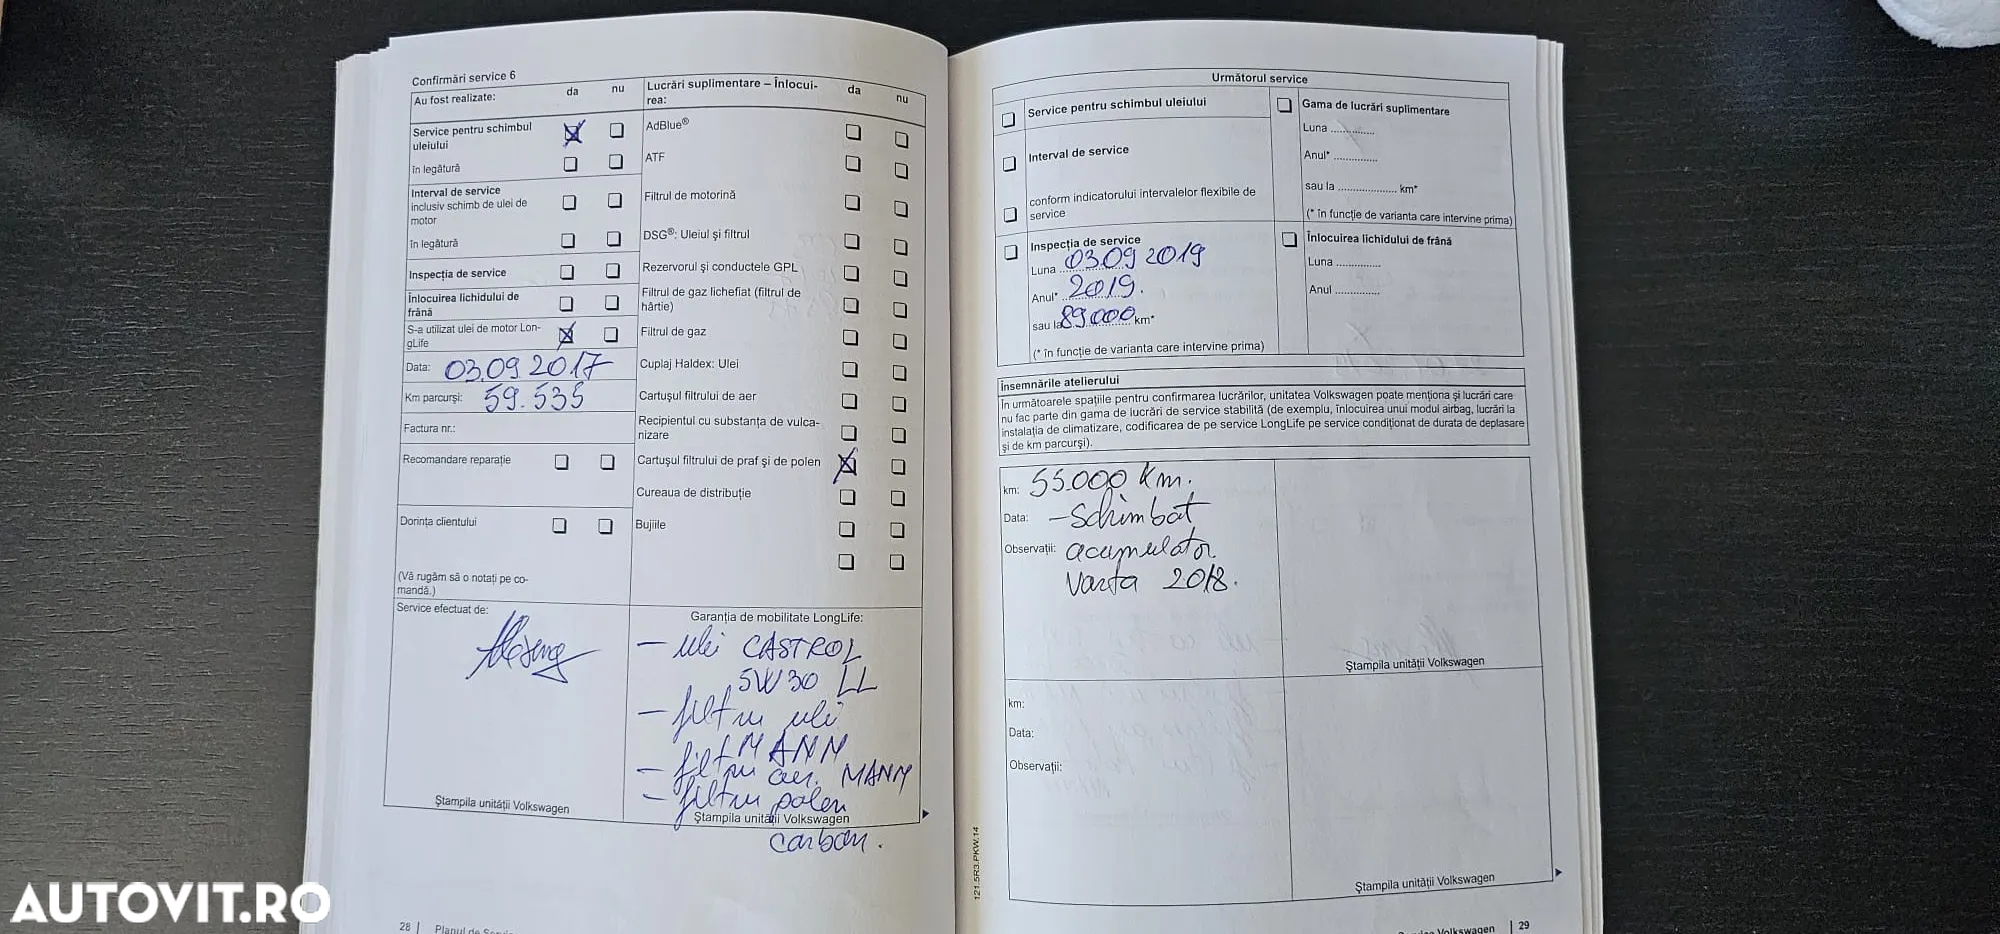 Confirmări service 6
Au fost realizate: da nu
Service pentru schimbul
uleiului
în legătură
Interval de service
inclusiv schimb de ulei de
motor
în legătură
Inspecția de service
Înlocuirea lichidului de
frână
S-a utilizat ulei de motor Lon-
gLife
Data: 03.09.2017
Km parcurși: 59.535
Factura nr.:
Recomandare reparație
Dorința clientului
(Vă rugăm să o notați pe co-
mandă.)
Service efectuat de:
Ștampila unității Volkswagen
Lucrări suplimentare – Înlocui-
rea: da nu
AdBlue®
ATF
Filtrul de motorină
DSG®: Uleiul și filtrul
Rezervorul și conductele GPL
Filtrul de gaz lichefiat (filtrul de
hârtie)
Filtrul de gaz
Cuplaj Haldex: Ulei
Cartușul filtrului de aer
Recipientul cu substanța de vulca-
nizare
Cartușul filtrului de praf și de polen
Cureaua de distribuție
Bujiile
Garanția de mobilitate LongLife:
– ulei CASTROL
5W30 LL
– filtru ulei
MANN
– filtru aer. MANN
– filtru polen
Ștampila unității Volkswagen
carbon.
28 | Planul de
Următorul service
Service pentru schimbul uleiului
Interval de service
conform indicatorului intervalelor flexibile de
service
Inspecția de service
Luna 03.09 2019
Anul* 2019.
sau la 89000 km*
(* în funcție de varianta care intervine prima)
Gama de lucrări suplimentare
Luna ..............
Anul* ..............
sau la ................... km*
(* în funcție de varianta care intervine prima)
Înlocuirea lichidului de frână
Luna ..............
Anul ..............
Însemnările atelierului
În următoarele spațiile pentru confirmarea lucrărilor, unitatea Volkswagen poate menționa și lucrări care
nu fac parte din gama de lucrări de service stabilită (de exemplu, înlocuirea unui modul airbag, lucrări la
instalația de climatizare, codificarea de pe service LongLife pe service condiționat de durata de deplasare
și de km parcurși).
km: 55.000 Km.
Data: – Schimbat
Observații: acumulator
Varta 2018.
Ștampila unității Volkswagen
km:
Data:
Observații:
Ștampila unității Volkswagen
121.5R3.PKW.14
Volkswagen | 29
AUTOVIT.RO